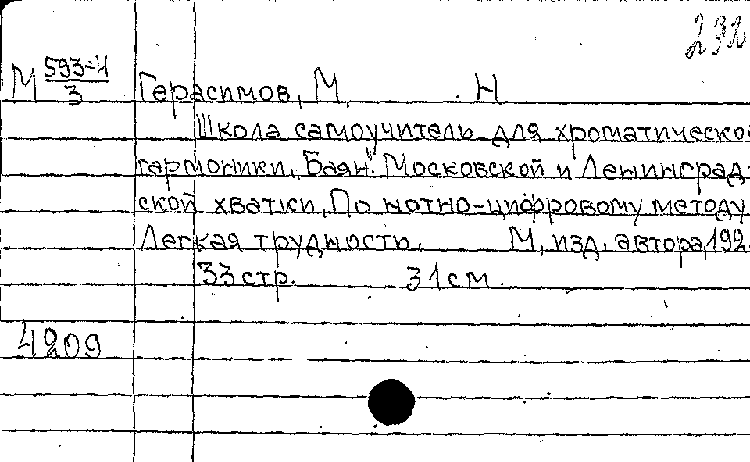 232
М 593-4/3 Герасимов, М. Н
Школа самоучитель для хроматической
гармоники „Баян" Московской и Ленинград-
ской хватки, По нотно-цифровому методу.
Легкая трудность. М, изд. автора, 192
33 стр. 31 см
4209